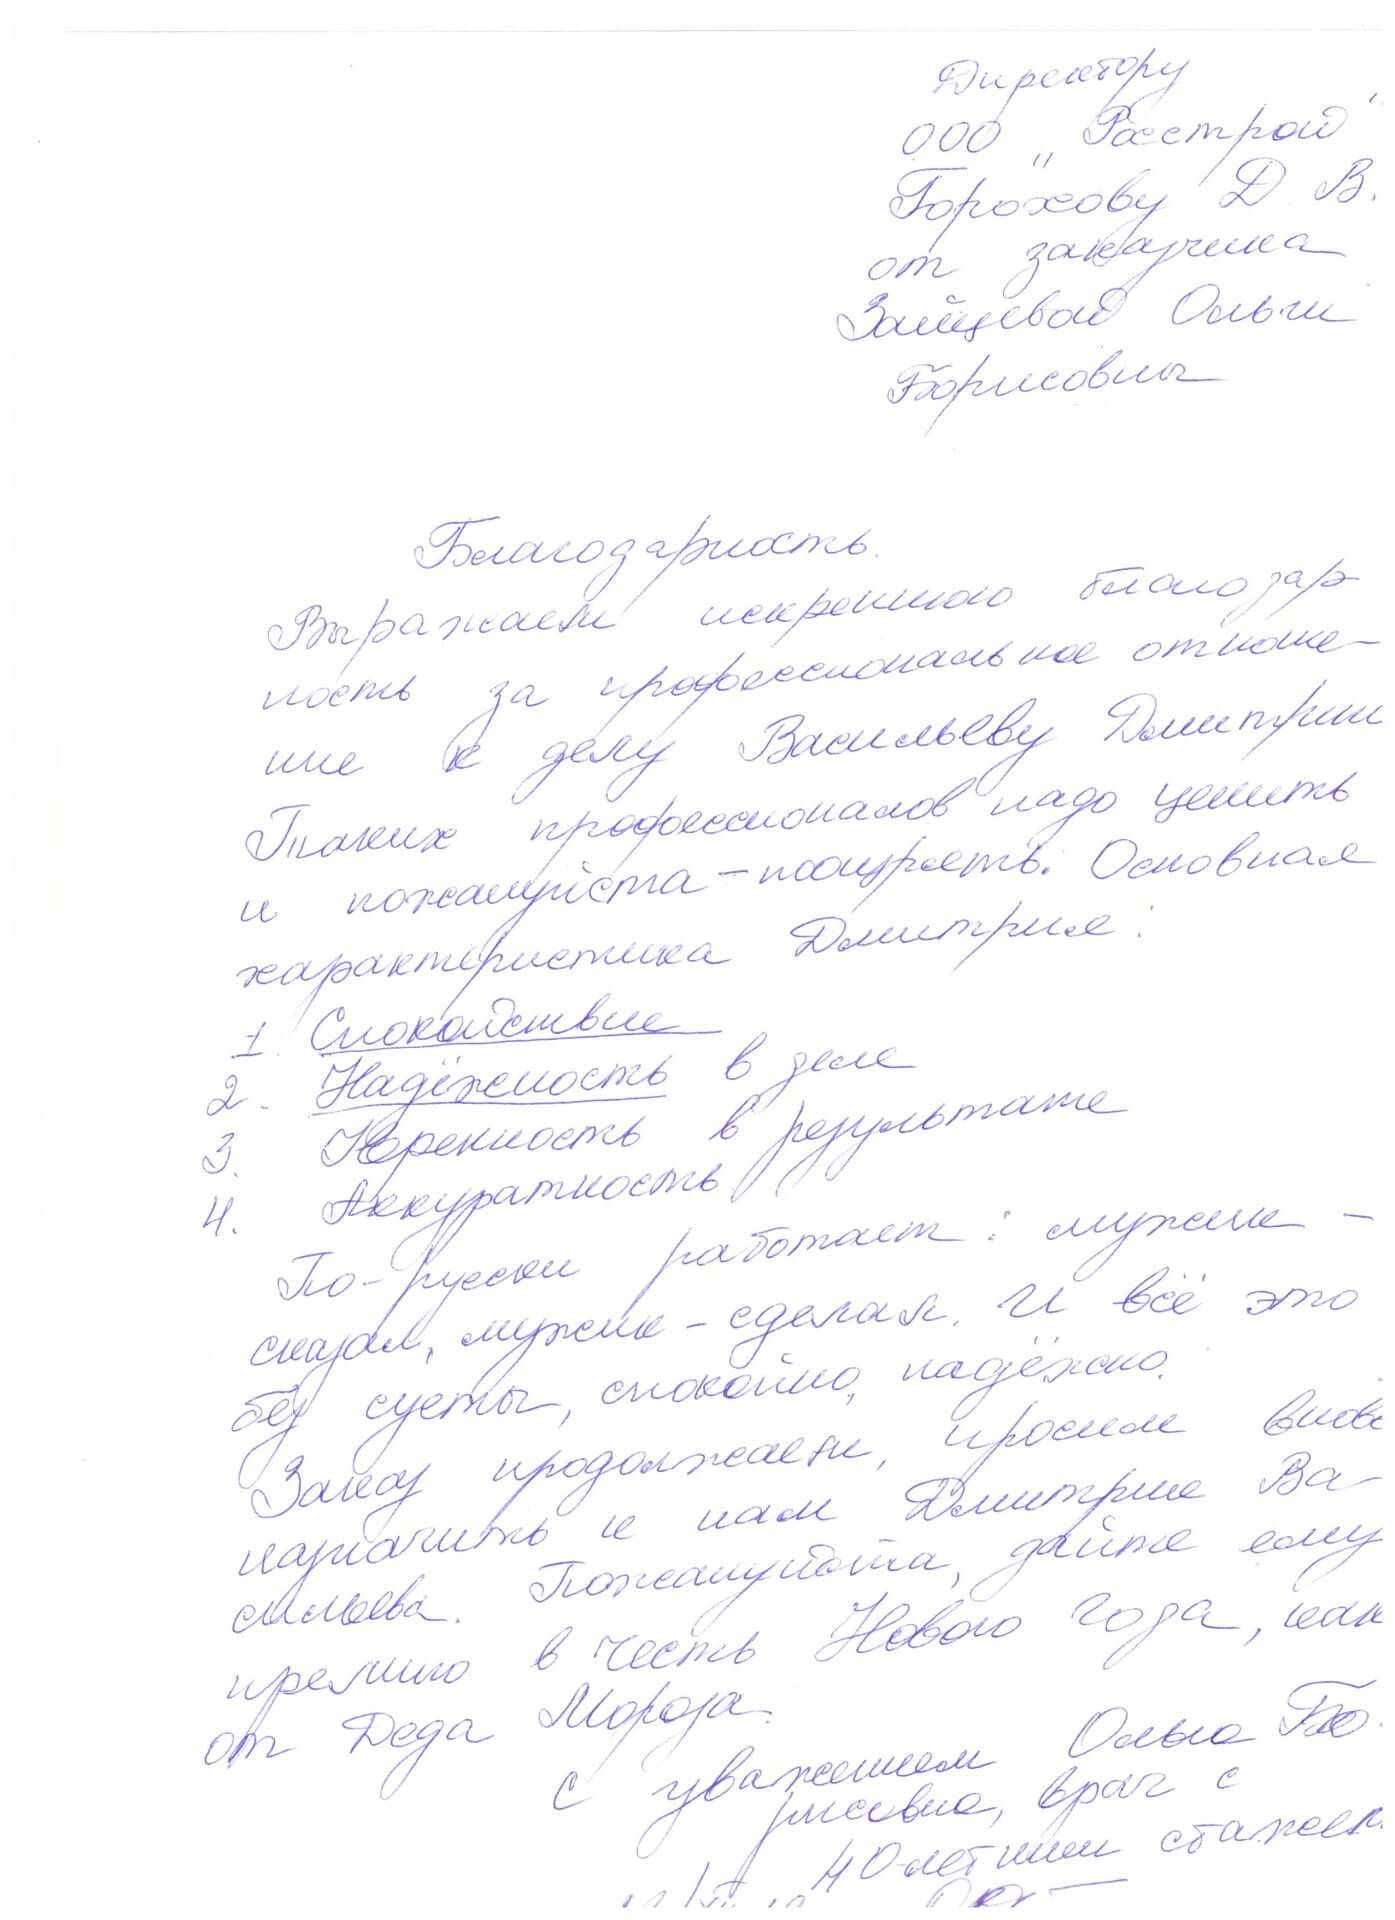 Директору
ООО „Расстрой"
Горохову Д. В.
от заказчика
Зайцевой Ольги
Борисовны
Благодарность.
Выражаем искреннюю благодар-
ность за профессиональное отноше-
ние к делу Васильеву Дмитрию
Таких профессионалов надо ценить
и пожалуйста – поощрять. Основная
характеристика Дмитрия:
1. Спокойствие
2. Надёжность в деле
3. Уверенность в результате
4. Аккуратность
По-русски работает: мужик –
сказал, мужик – сделал. И всё это
без суеты, спокойно, надёжно.
Заказ продолжаем, просим вновь
назначить к нам Дмитрия Ва-
сильева. Пожалуйста, дайте ему
премию в честь Нового года, как
от Деда Мороза.
с уважением Ольга Бо-
рисовна, врач с
40-летним стажем